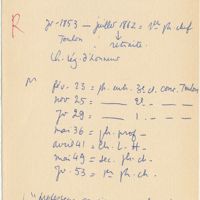 R
Jr 1853 — juillet 1862 = 1er ph. chef
Toulon ↓ retraite
Ch. lég. d'honneur
fév. 23 = ph. 3e cl. Toulon
nov 25 = — 2e —
Jr 29 = — 1 —
mai 36 = ph. prof —
avril 41 = ch. L. H —
mai 49 = sec. ph. ch —
Jr 53 = 1er ph. ch.